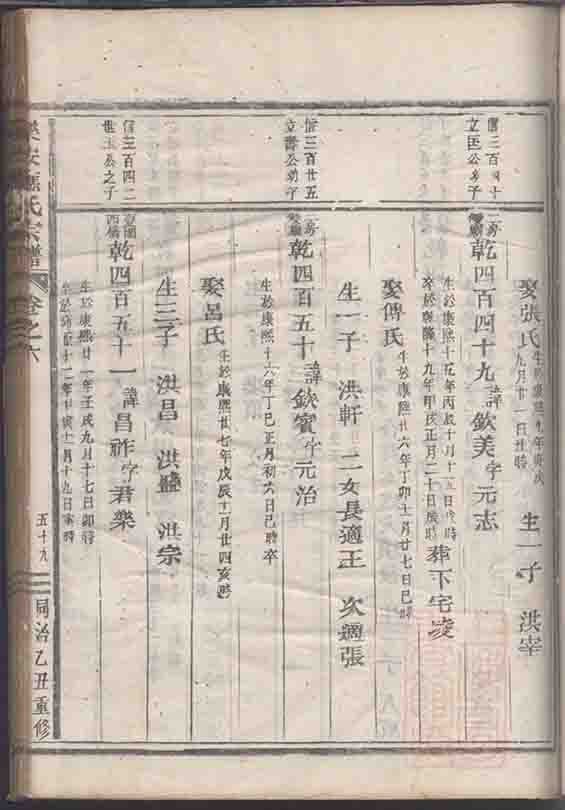 娶張氏 生於康熙九年庚戌九月廿一日 時 生一子 洪宰
信三百四十一房
立匡公 子
乾四百四十九諱欽美字元志
生於康熙十五年丙辰十月十 日 時
卒於乾隆十九年甲戌正月二十日辰時 葬下宅
娶傅氏 生於康熙廿六年丁卯十一月廿七日巳時
生一子 洪軒 二女長適王 次適張
信三百廿五 房
立壽公 子
乾四百五十諱欽賓字元治
生於康熙十六年丁巳正月初六日巳時卒
娶呂氏 生於康熙廿七年戊辰十月廿四亥時
生三子 洪昌 洪盛 洪宗
信三百四二
世 公之子
乾四百五十一諱昌祚字君樂
生於康熙廿一年壬戌九月十七日卯時
十二年 寅十一月十九日 時
氏宗譜 卷之六 五十九 同治乙丑重修